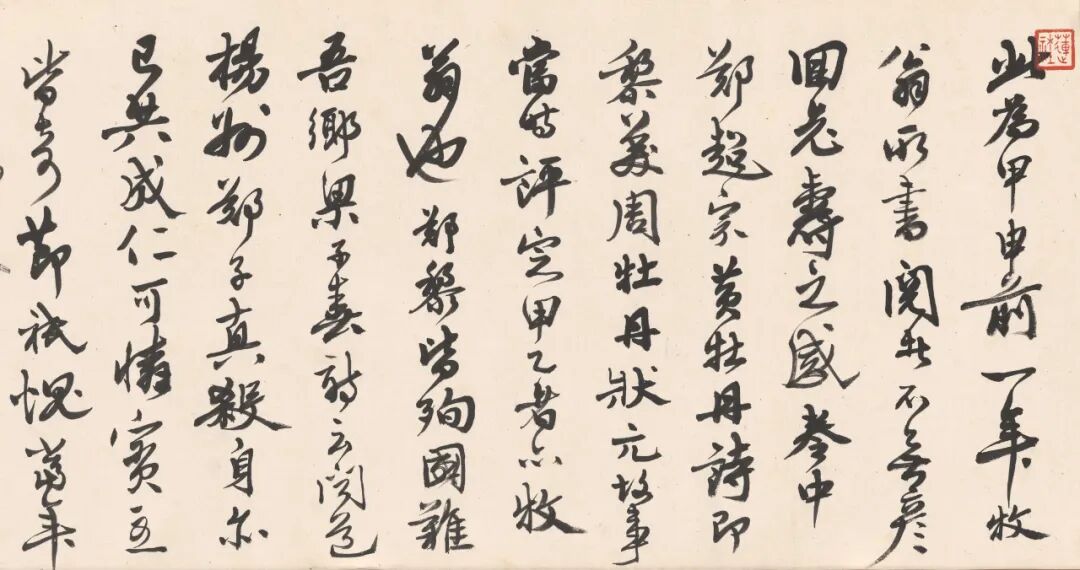 此為甲申前一年牧
翁所書閱者不無彥
回老壽之感卷中
鄭超宗黃牡丹詩即
黎美周牡丹狀元故事
當時評定甲乙者亦牧
翁也鄭黎皆殉國難
吾鄉梁詩云聞道
楊州鄭子真殺身亦
已共成仁可憐賓主
皆奇節祇愧當年